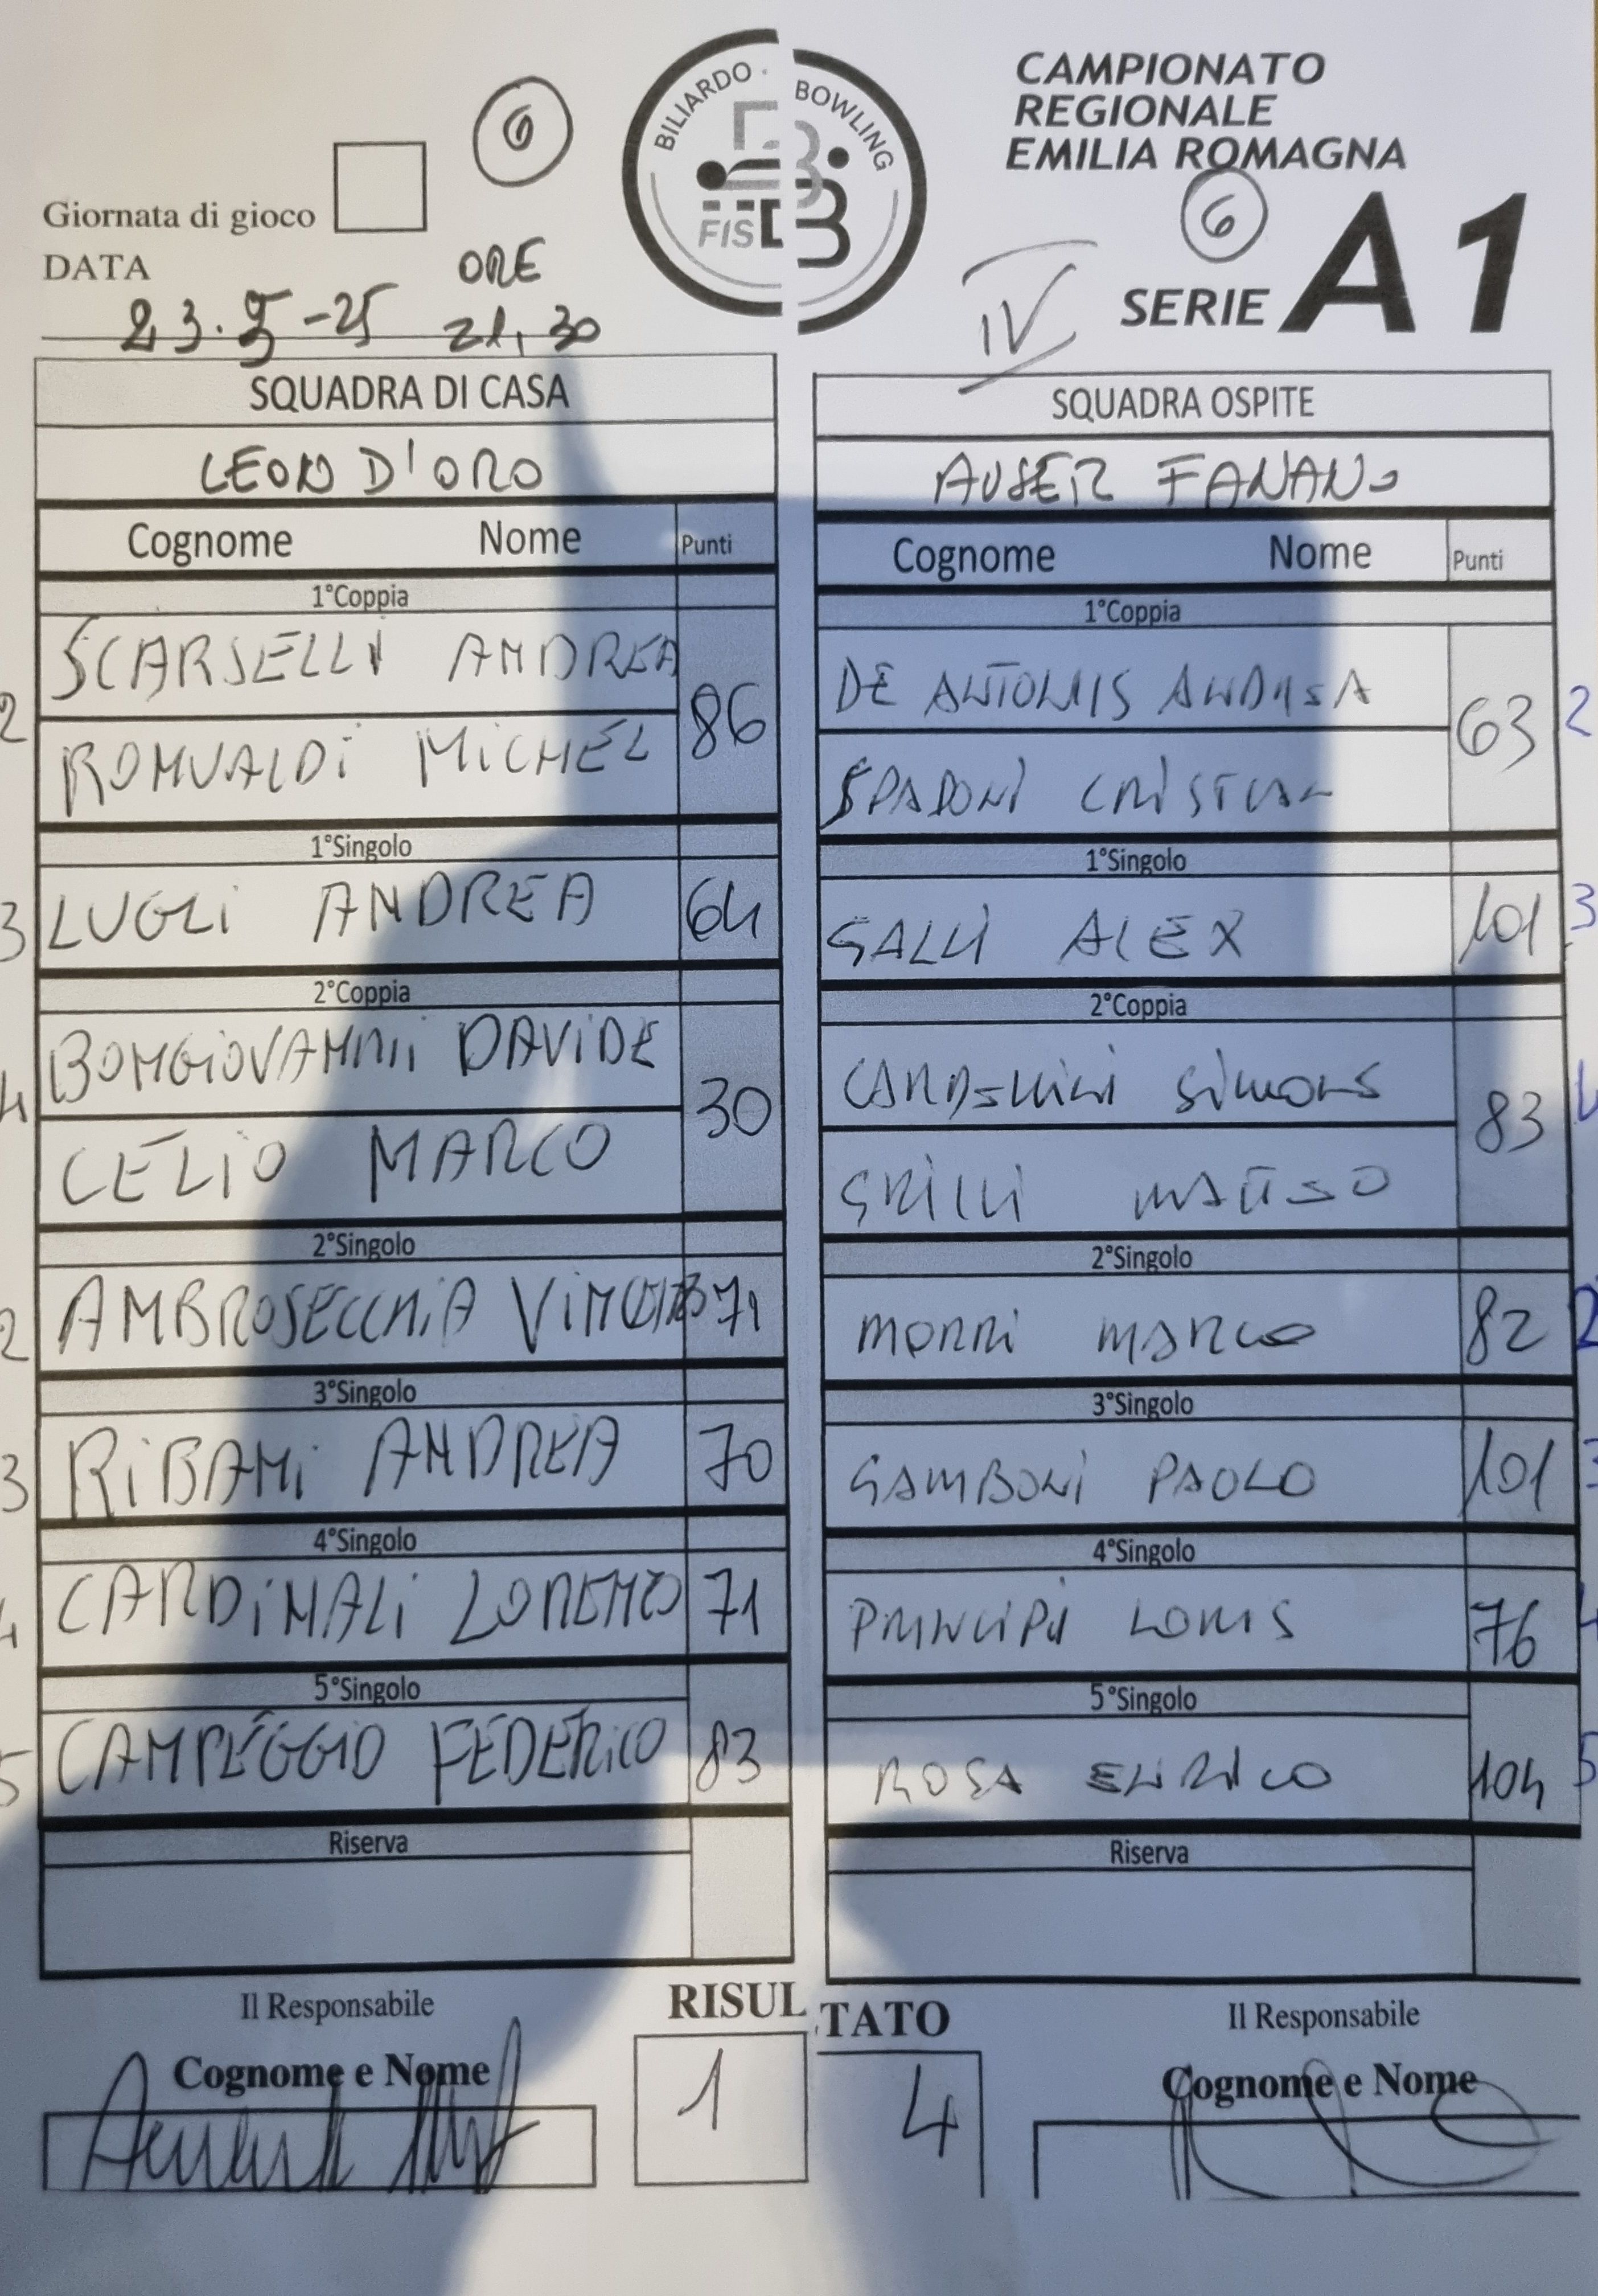 CAMPIONATO
REGIONALE
EMILIA ROMAGNA
BILIARDO · BOWLING
FISBB
6
6
Giornata di gioco
DATA
ORE
23.5-25 21,30
IV
SERIE A1
SQUADRA DI CASA
LEON D'ORO
Cognome Nome Punti
1°Coppia
2 SCARSELLI ANDREA 86
ROMUALDI MICHEL
1°Singolo
3 LUGLI ANDREA 64
2°Coppia
4 BONGIOVANNI DAVIDE 30
CELIO MARCO
2°Singolo
2 AMBROSECCHIA 71
3°Singolo
3 RIBANI ANDREA 70
4°Singolo
4 CARDINALI LORENZO 71
5°Singolo
5 CAMPEGGIO FEDERICO 83
Riserva
SQUADRA OSPITE
AUSER FANANO
Cognome Nome Punti
1°Coppia
DE ANTONIS ANDREA 63 2
SPADONI CRISTIAN
1°Singolo
GALLI ALEX 101 3
2°Coppia
SIMONE 83
GRILLI MATTEO
2°Singolo
MORRI MARCO 82 2
3°Singolo
GAMBONI PAOLO 101 3
4°Singolo
PRINCIPI LORIS 76 4
5°Singolo
ROSA ENRICO 104 5
Riserva
Il Responsabile
Cognome e Nome
RISULTATO
1 4
Il Responsabile
Cognome e Nome